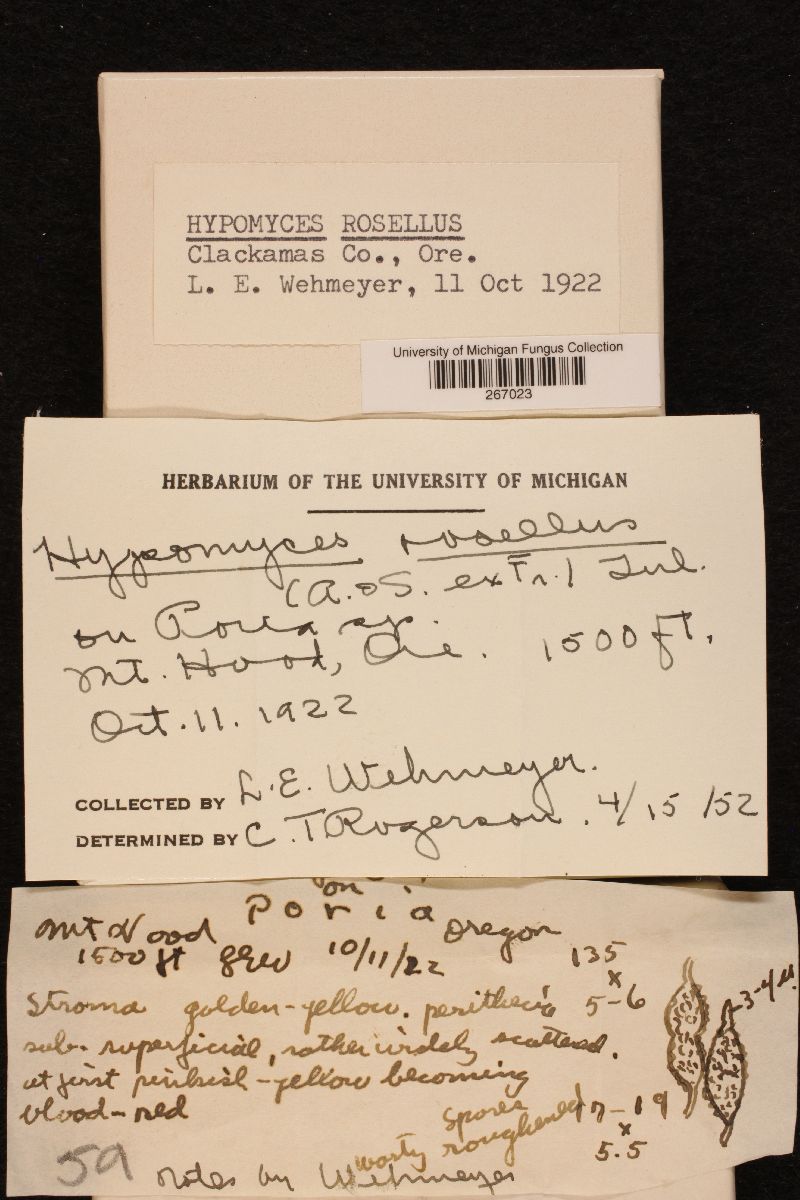 HYPOMYCES ROSELLUS
Clackamas Co., Ore.
L. E. Wehmeyer, 11 Oct 1922
University of Michigan Fungus Collection
267023
HERBARIUM OF THE UNIVERSITY OF MICHIGAN
Hypomyces rosellus
(A. & S. ex Fr.) Tul.
on Poria sp.
Mt. Hood, Ore. 1500 ft.
Oct. 11. 1922
COLLECTED BY L. E. Wehmeyer.
DETERMINED BY C. T. Rogerson. 4/15/52
on
Poria
Mt Hood Oregon
1500 ft 10/11/22
135
x
5-6
3-4 µ.
Stroma golden-yellow. perithecia
sub-superficial, rather widely scattered.
at first pinkish-yellow becoming
blood-red
Spores 17-19
warty roughened x
5.5
59 notes by Wehmeyer